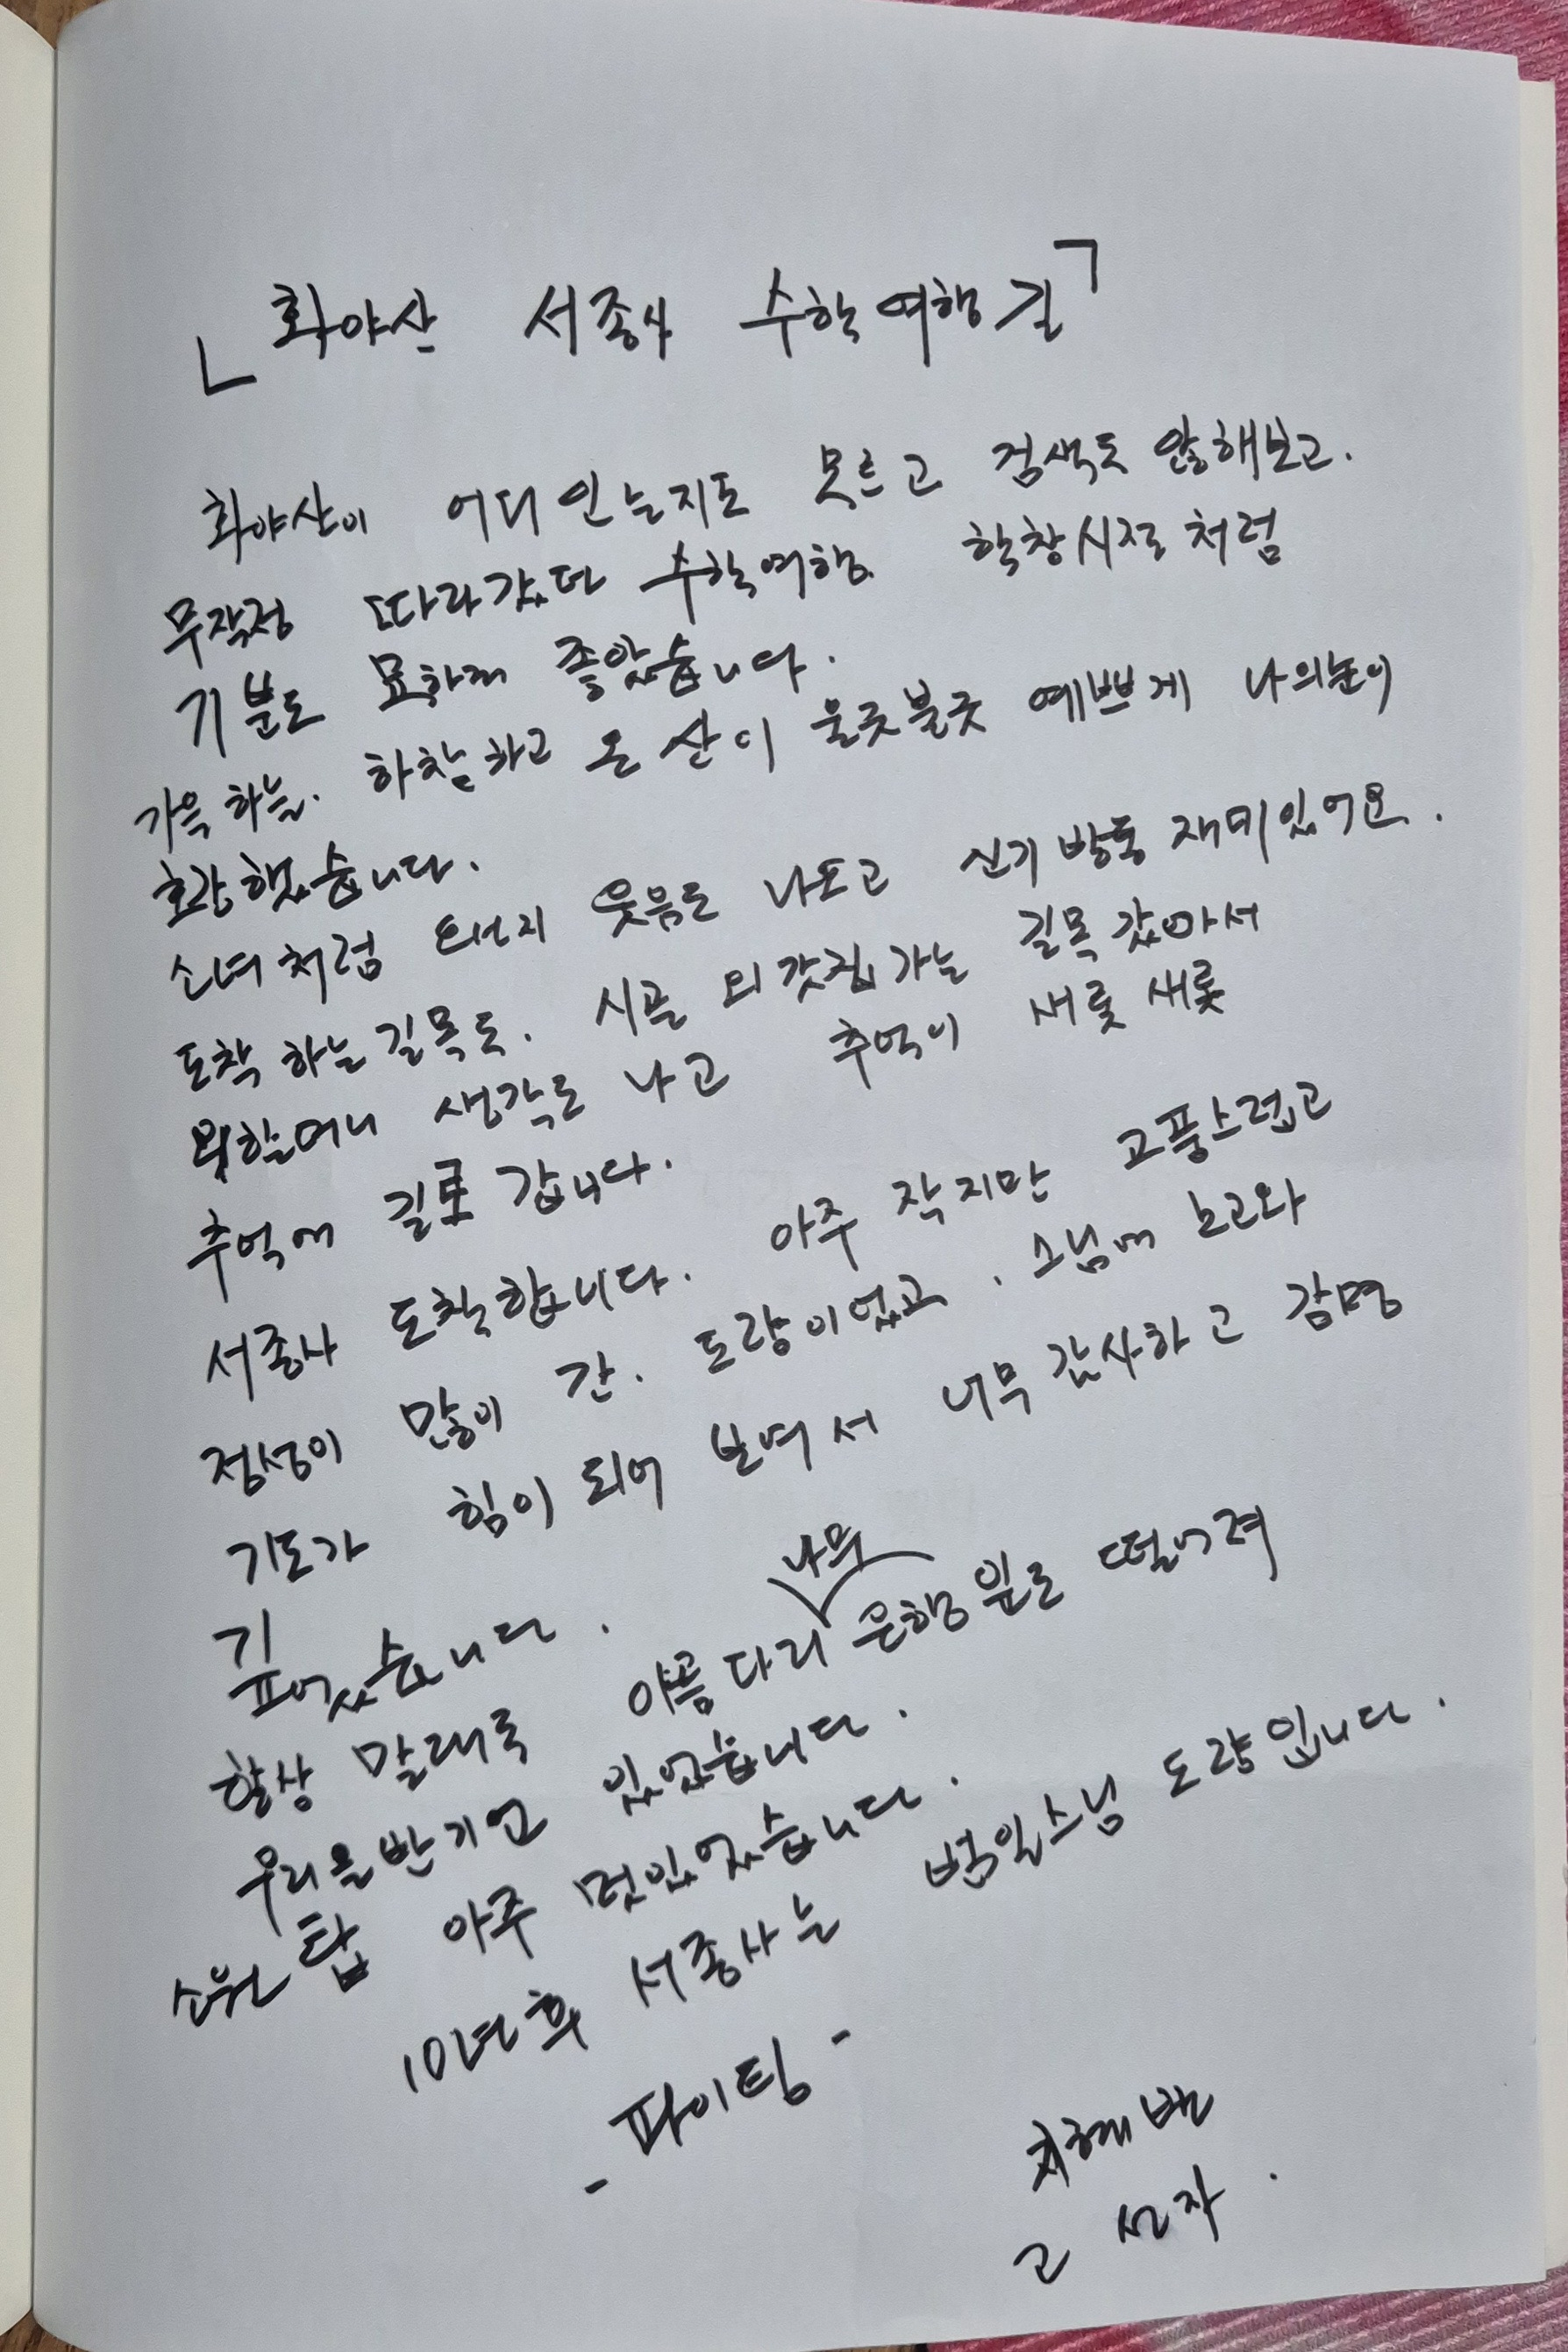 「화야산 서종사 수학여행길」
화야산이 어디인는지도 못르고 검색도 않해보고.
무작정 따라갔던 수학여행. 학창시절처럼
기분도 묘하게 좋았습니다.
가을하늘. 화창하고 온산이 울긋불긋 예쁘게 나의눈이
호강했습니다.
소녀처럼 왠지 웃음도 나오고 신기방통 재미있어요.
도착하는길목도. 시골 외갓집가는 길목 같아서
외할머니 생각도 나고 추억이 새롯새롯
추억에 길로 갑니다.
서종사 도착합니다. 아주 작지만 고풍스럽고
정성이 많이 간. 도량이었고. 스님에 노고와
기도가 힘이되어 보여서 너무 감사하고 감명
깊었습니다.
항상 말대로 아름다리 나무 은행잎도 떨어져
우리을반기언 있었습니다.
소원탑 아주 멋있었습니다.
10년후 서종사는 법일스님 도량입니다.
- 파이팅 -
지혜반
고 선자.